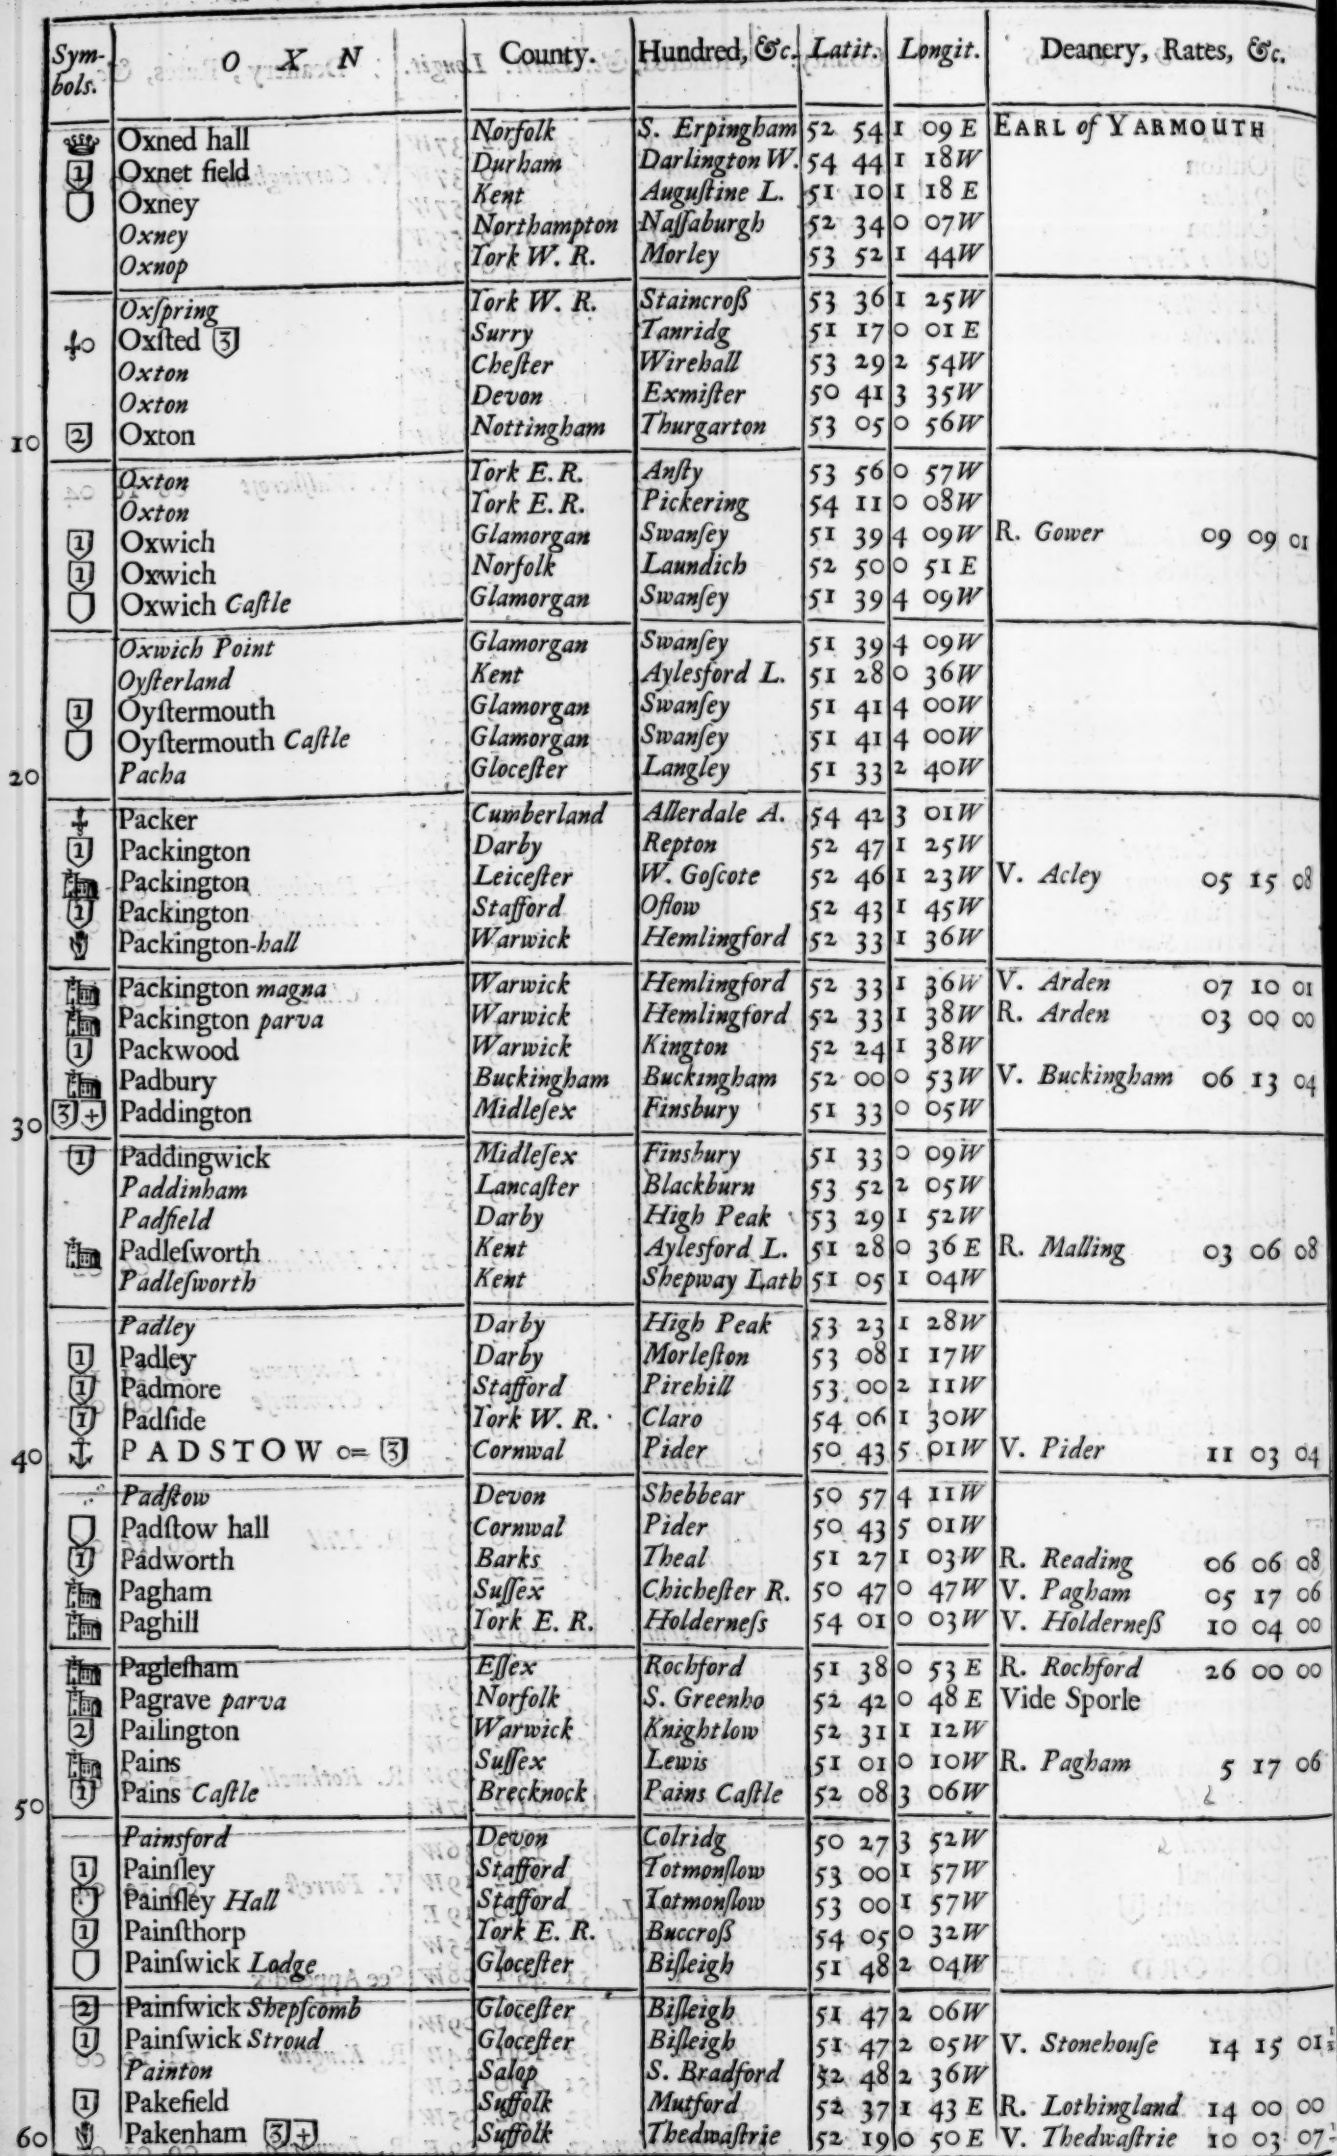 Sym- O X N County. Hundred, &c. Latit. Longit. Deanery, Rates, &c.
bols.
Oxned hall Norfolk S. Erpingham 52 54 1 09 E EARL of YARMOUTH
1 Oxnet field Durham Darlington W. 54 44 1 18 W
Oxney Kent Auguſtine L. 51 10 1 18 E
Oxney Northampton Naſſaburgh 52 34 0 07 W
Oxnop York W. R. Morley 53 52 1 44 W
Oxſpring York W. R. Staincroß 53 36 1 25 W
Oxſted 3 Surry Tanridg 51 17 0 01 E
Oxton Cheſter Wirehall 53 29 2 54 W
Oxton Devon Exmiſter 50 41 3 35 W
10 2 Oxton Nottingham Thurgarton 53 05 0 56 W
Oxton York E. R. Anſty 53 56 0 57 W
Oxton York E. R. Pickering 54 11 0 08 W
1 Oxwich Glamorgan Swanſey 51 39 4 09 W R. Gower 09 09 01
1 Oxwich Norfolk Laundich 52 50 0 51 E
Oxwich Caſtle Glamorgan Swanſey 51 39 4 09 W
Oxwich Point Glamorgan Swanſey 51 39 4 09 W
Oyſterland Kent Aylesford L. 51 28 0 36 W
1 Oyſtermouth Glamorgan Swanſey 51 41 4 00 W
Oyſtermouth Caſtle Glamorgan Swanſey 51 41 4 00 W
20 Pacha Gloceſter Langley 51 33 2 40 W
Packer Cumberland Allerdale A. 54 42 3 01 W
1 Packington Darby Repton 52 47 1 25 W
Packington Leiceſter W. Goſcote 52 46 1 23 W V. Acley 05 15 08
1 Packington Stafford Oflow 52 43 1 45 W
Packington-hall Warwick Hemlingford 52 33 1 36 W
Packington magna Warwick Hemlingford 52 33 1 36 W V. Arden 07 10 01
Packington parva Warwick Hemlingford 52 33 1 38 W R. Arden 03 00 00
1 Packwood Warwick Kington 52 24 1 38 W
Padbury Buckingham Buckingham 52 00 0 53 W V. Buckingham 06 13 04
30 3 + Paddington Midleſex Finsbury 51 33 0 05 W
1 Paddingwick Midleſex Finsbury 51 33 0 09 W
Paddinham Lancaſter Blackburn 53 52 2 05 W
Padfield Darby High Peak 53 29 1 52 W
Padleſworth Kent Aylesford L. 51 28 0 36 E R. Malling 03 06 08
Padleſworth Kent Shepway Lath 51 05 1 04 W
Padley Darby High Peak 53 23 1 28 W
1 Padley Darby Morleſton 53 08 1 17 W
1 Padmore Stafford Pirehill 53 00 2 11 W
1 Padſide York W. R. Claro 54 06 1 30 W
40 PADSTOW o= 3 Cornwal Pider 50 43 5 01 W V. Pider 11 03 04
Padſtow Devon Shebbear 50 57 4 11 W
Padſtow hall Cornwal Pider 50 43 5 01 W
1 Padworth Barks Theal 51 27 1 03 W R. Reading 06 06 08
Pagham Suſſex Chicheſter R. 50 47 0 47 W V. Pagham 05 17 06
Paghill York E. R. Holderneſs 54 01 0 03 W V. Holderneß 10 04 00
Pagleſham Eſſex Rochford 51 38 0 53 E R. Rochford 26 00 00
Pagrave parva Norfolk S. Greenho 52 42 0 48 E Vide Sporle
2 Pailington Warwick Knightlow 52 31 1 12 W
Pains Suſſex Lewis 51 01 0 10 W R. Pagham 5 17 06
50 1 Pains Caſtle Brecknock Pains Caſtle 52 08 3 06 W
Painsford Devon Colridg 50 27 3 52 W
1 Painſley Stafford Totmonſlow 53 00 1 57 W
Painſley Hall Stafford Totmonſlow 53 00 1 57 W
1 Painſthorp York E. R. Buccroß 54 05 0 32 W
Painſwick Lodge Gloceſter Biſleigh 51 48 2 04 W
2 Painſwick Shepſcomb Gloceſter Biſleigh 51 47 2 06 W
1 Painſwick Stroud Gloceſter Biſleigh 51 47 2 05 W V. Stonehouſe 14 15 01½
Painton Salop S. Bradford 52 48 2 36 W
1 Pakefield Suffolk Mutford 52 37 1 43 E R. Lothingland 14 00 00
60 Pakenham 3 + Suffolk Thedwaſtrie 52 19 0 50 E V. Thedwaſtrie 10 03 07